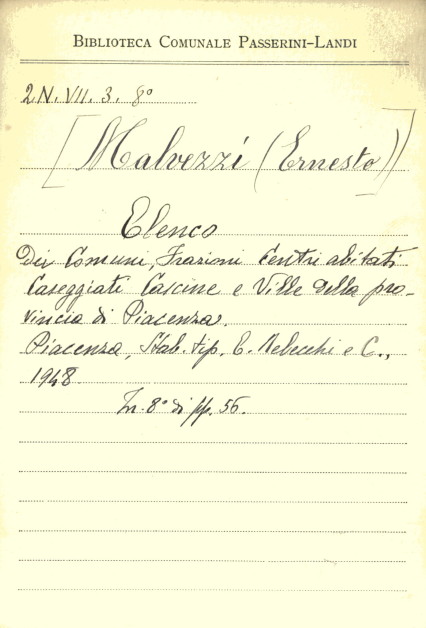 BIBLIOTECA COMUNALE PASSERINI-LANDI
2N. VII. 3. 8°
[Malvezzi (Ernesto)]
Elenco
Dei Comuni, Frazioni Centri abitati
Caseggiati Cascine e Ville della pro-
vincia di Piacenza.
Piacenza, Stab. tip. E. Rebecchi e C.,
1948
In. 8° di pp. 56.